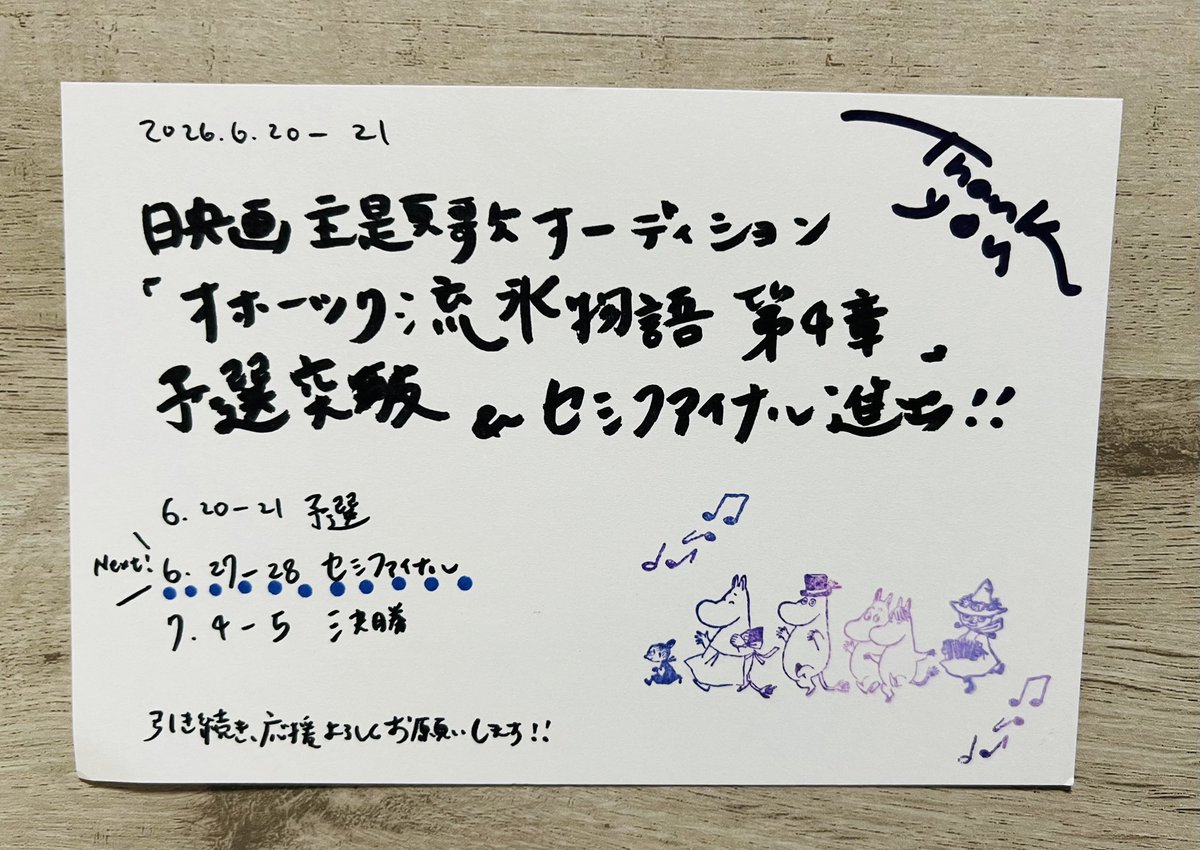 2026.6.20-21
Thank
you
映画主題歌オーディション
「オホーツク流氷物語 第4章」
予選突破 & セミファイナル進出!!
6.20-21 予選
Next!
6.27-28 セミファイナル
7.4-5 決勝
引き続き、応援よろしくお願いします!!